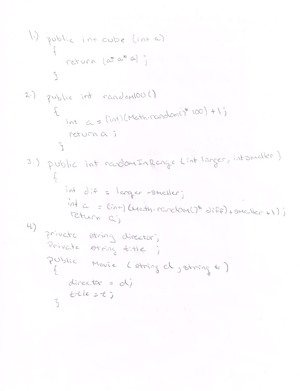 1.) public int cube (int a)
{
return (a*a*a);
}
2.) public int random100()
{
int a = (int)(Math.random()*100)+1;
return a;
}
3.) public int randomInRange (int larger, int smaller)
{
int dif = larger-smaller;
int a = (int)(Math.random()* diff)+smaller+1);
return a;
4)
private string director;
Private string title;
public Movie (string d, string t)
{
director = d;
title = t;
}